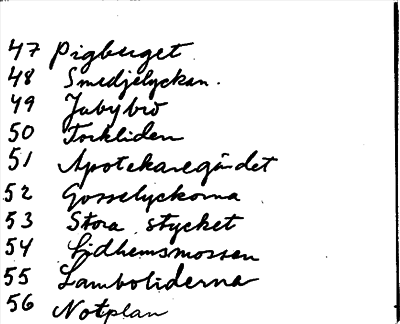 47 Pigberget
48 Smedjelyckan.
49 Jubybro
50 Torkliden
51 Apotekaregärdet
52 Gosselyckorna
53 Stora stycket
54 Lidhemsmossen
55 Lamboliderna
56 Notplan